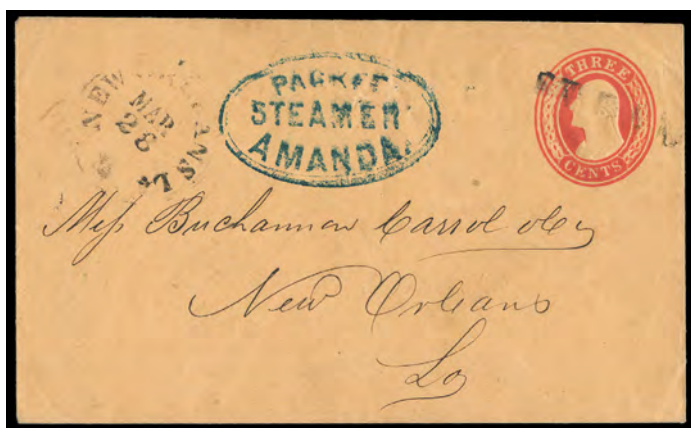 NEW
LA
MAR
28
PACKET
STEAMER
AMANDA
THREE
CENTS
Messrs Buchannon Carrol & Co
New Orleans
La